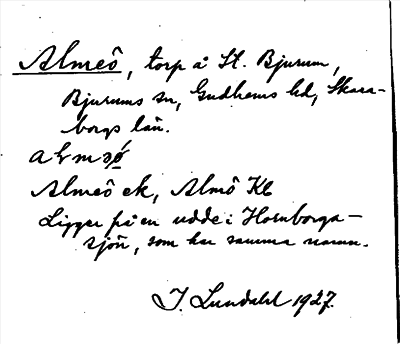 Almeö, torp å St. Bjurum,
Bjurums sn, Gudhems hd, Skara-
borgs län.
Almeö ek, Almö Kb
Ligger på en udde i Hornborga-
sjön, som har samma namn.
J. Lundahl 1927.